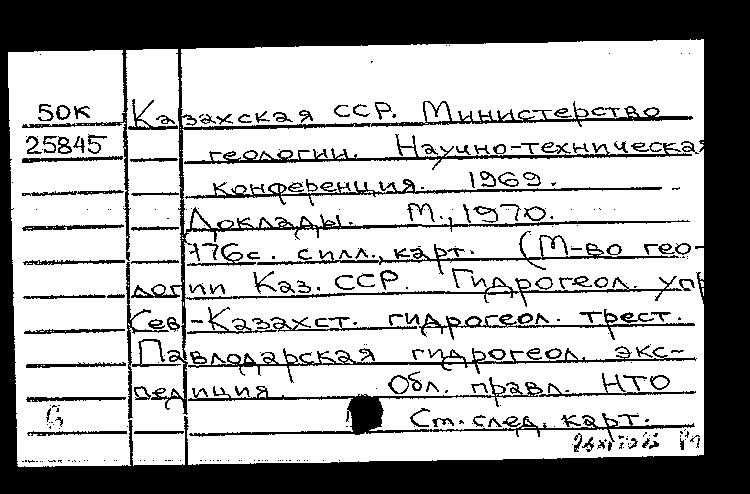 50К Казахская ССР. Министерство
25845 геологии. Научно-техническая
конференция. 1969.
Доклады. М., 1970.
176с. силл., карт. (М-во гео-
логии Каз. ССР. Гидрогеол. упр
Сев.-Казахст. гидрогеол. трест.
Павлодарская гидрогеол. экс-
педиция. Обл. правл. НТО
Ст. след. карт.